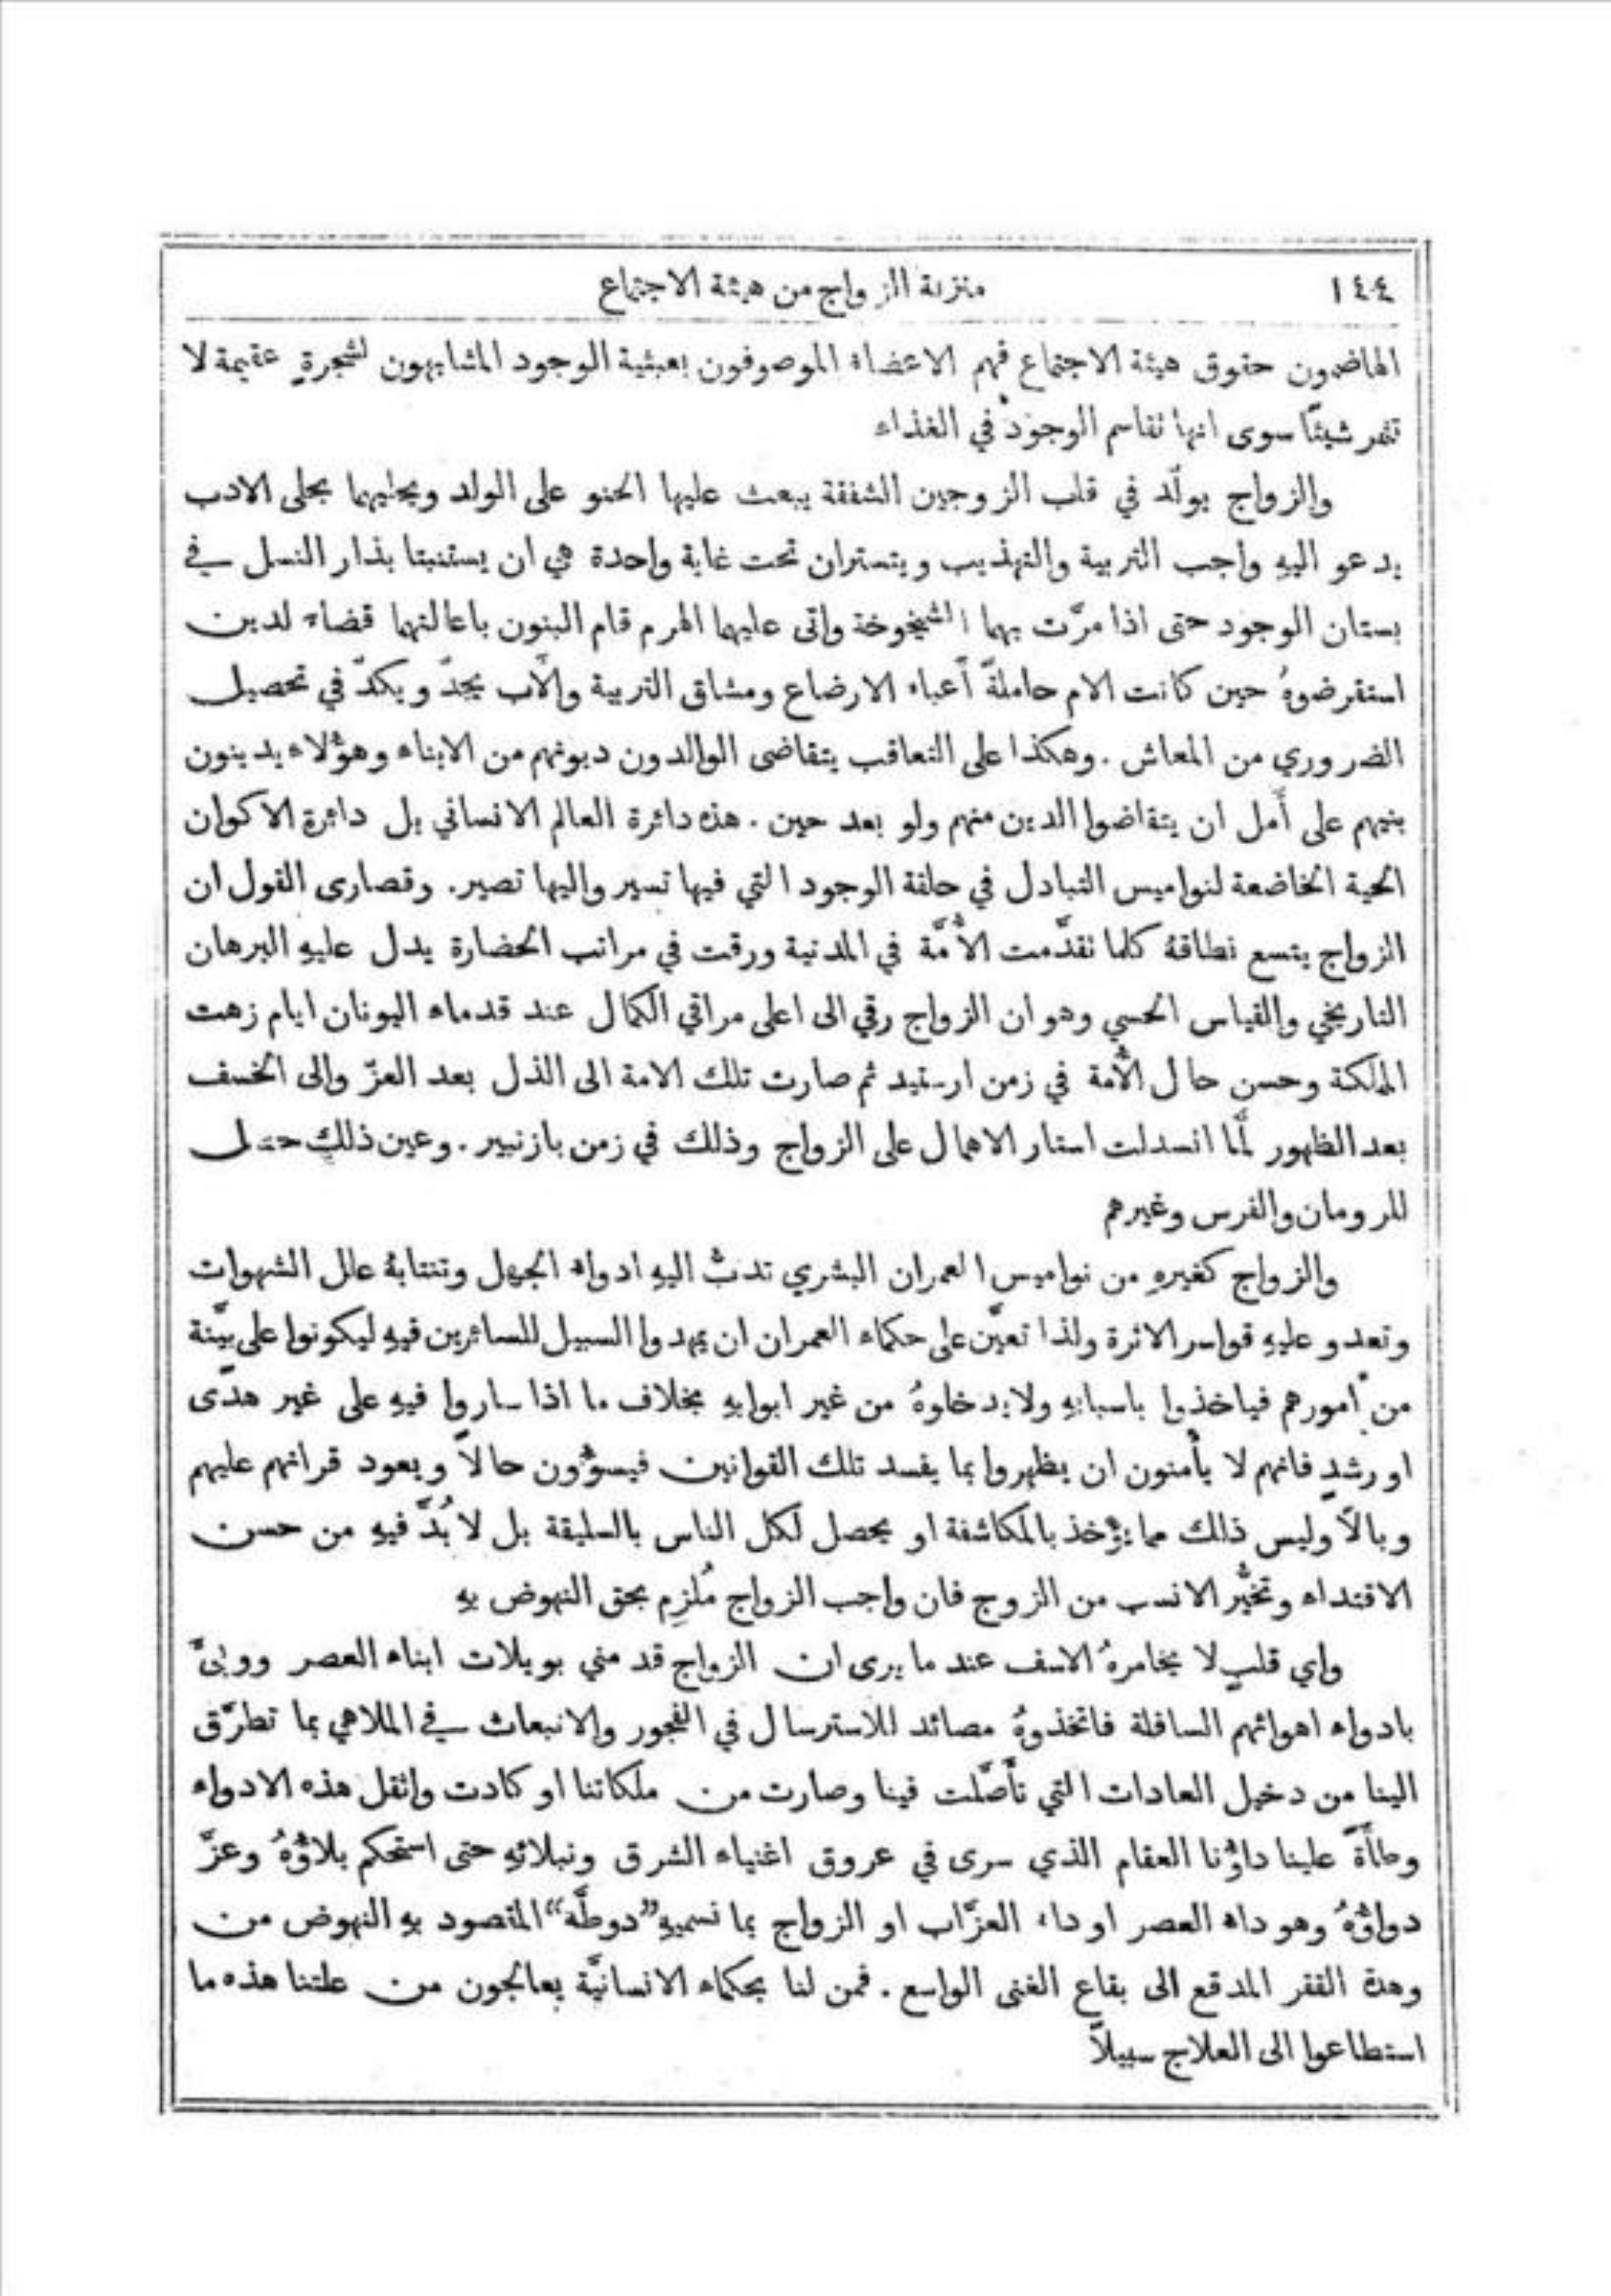 ١٤٤ منزلة الزواج من هيئة الاجتماع
الهاضمون حقوق هيئة الاجتماع فهم الاعضاء الموصوفون بعبثية الوجود المشابهون لشجرةٍ عقيمة لا
تثمر شيئًا سوى انها تقاسم الوجود في الغذاء
والزواج يولّد في قلب الزوجين الشفقة يبعث عليها الحنو على الولد ويحليهما بحلى الادب
يدعو اليهِ واجب التربية والتهذيب ويتستران تحت غاية واحدة هي ان يستنبتا بذار النسل في
بستان الوجود حتى اذا مرَّت بهما الشيخوخة واتى عليهما الهرم قام البنون باعالتهما قضاء لدين
استقرضوهُ حين كانت الام حاملةً أعباء الارضاع ومشاق التربية والأب يجدّ ويكدّ في تحصيل
الضروري من المعاش . وهكذا على التعاقب يتقاضى الوالدون ديونهم من الابناء وهؤلاء يدينون
بنيهم على أمل ان يتقاضوا الدين منهم ولو بعد حين . هذه دائرة العالم الانساني بل دائرة الاكوان
الحية الخاضعة لنواميس التبادل في حلقة الوجود التي فيها تسير واليها تصير . وقصارى القول ان
الزواج يتسع نطاقهُ كلما تقدَّمت الأُمَّة في المدنية ورقت في مراتب الحضارة يدل عليهِ البرهان
التاريخي والقياس الحسي وهو ان الزواج رقي الى اعلى مراقي الكمال عند قدماء اليونان ايام زهت
المملكة وحسن حال الأُمة في زمن ارستيد ثم صارت تلك الامة الى الذل بعد العزّ والى الخسف
بعد الظهور لمَّا انسدلت استار الاهمال على الزواج وذلك في زمن بازنيير . وعين ذلك حصل
للرومان والفرس وغيرهم
والزواج كغيرهِ من نواميس العمران البشري تدبُّ اليهِ ادواء الجهل وتنتابهُ علل الشهوات
وتعدو عليهِ قواسر الاثرة ولذا تعيَّن على حكماء العمران ان يمهدوا السبيل للسائرين فيهِ ليكونوا على بيّنة
من أُمورهم فياخذوا باسبابهِ ولا يدخلوهُ من غير ابوابهِ بخلاف ما اذا ساروا فيهِ على غير هدًى
او رشدٍ فانهم لا يأمنون ان يظهروا بما يفسد تلك القوانين فيسوُّون حالاً ويعود قرانهم عليهم
وبالاً وليس ذلك مما يؤخذ بالمكاشفة او يحصل لكل الناس بالسليقة بل لا بُدَّ فيهِ من حسن
الاقتداء وتخيُّر الانسب من الزوج فان واجب الزواج مُلزِم بحق النهوض بهِ
واي قلبٍ لا يخامرهُ الاسف عند ما يرى ان الزواج قد مني بويلات ابناء العصر ووبئَ
بادواء اهوائهم السافلة فاتخذوهُ مصائد للاسترسال في الفجور والانبعاث في الملاهي بما تطرَّق
الينا من دخيل العادات التي تأصَّلت فينا وصارت من ملكاتنا او كادت واثقل هذه الادواء
وطأةً علينا داؤُنا العقام الذي سرى في عروق اغنياء الشرق ونبلائهِ حتى استحكم بلاؤُهُ وعزَّ
دواؤُهُ وهو داء العصر او داء العزَّاب او الزواج بما نسميهِ "دوطَّه" المقصود بهِ النهوض من
وهدة الفقر المدقع الى بقاع الغنى الواسع . فمن لنا بحكماء الانسانيَّة يعالجون من علتنا هذه ما
استطاعوا الى العلاج سبيلاً